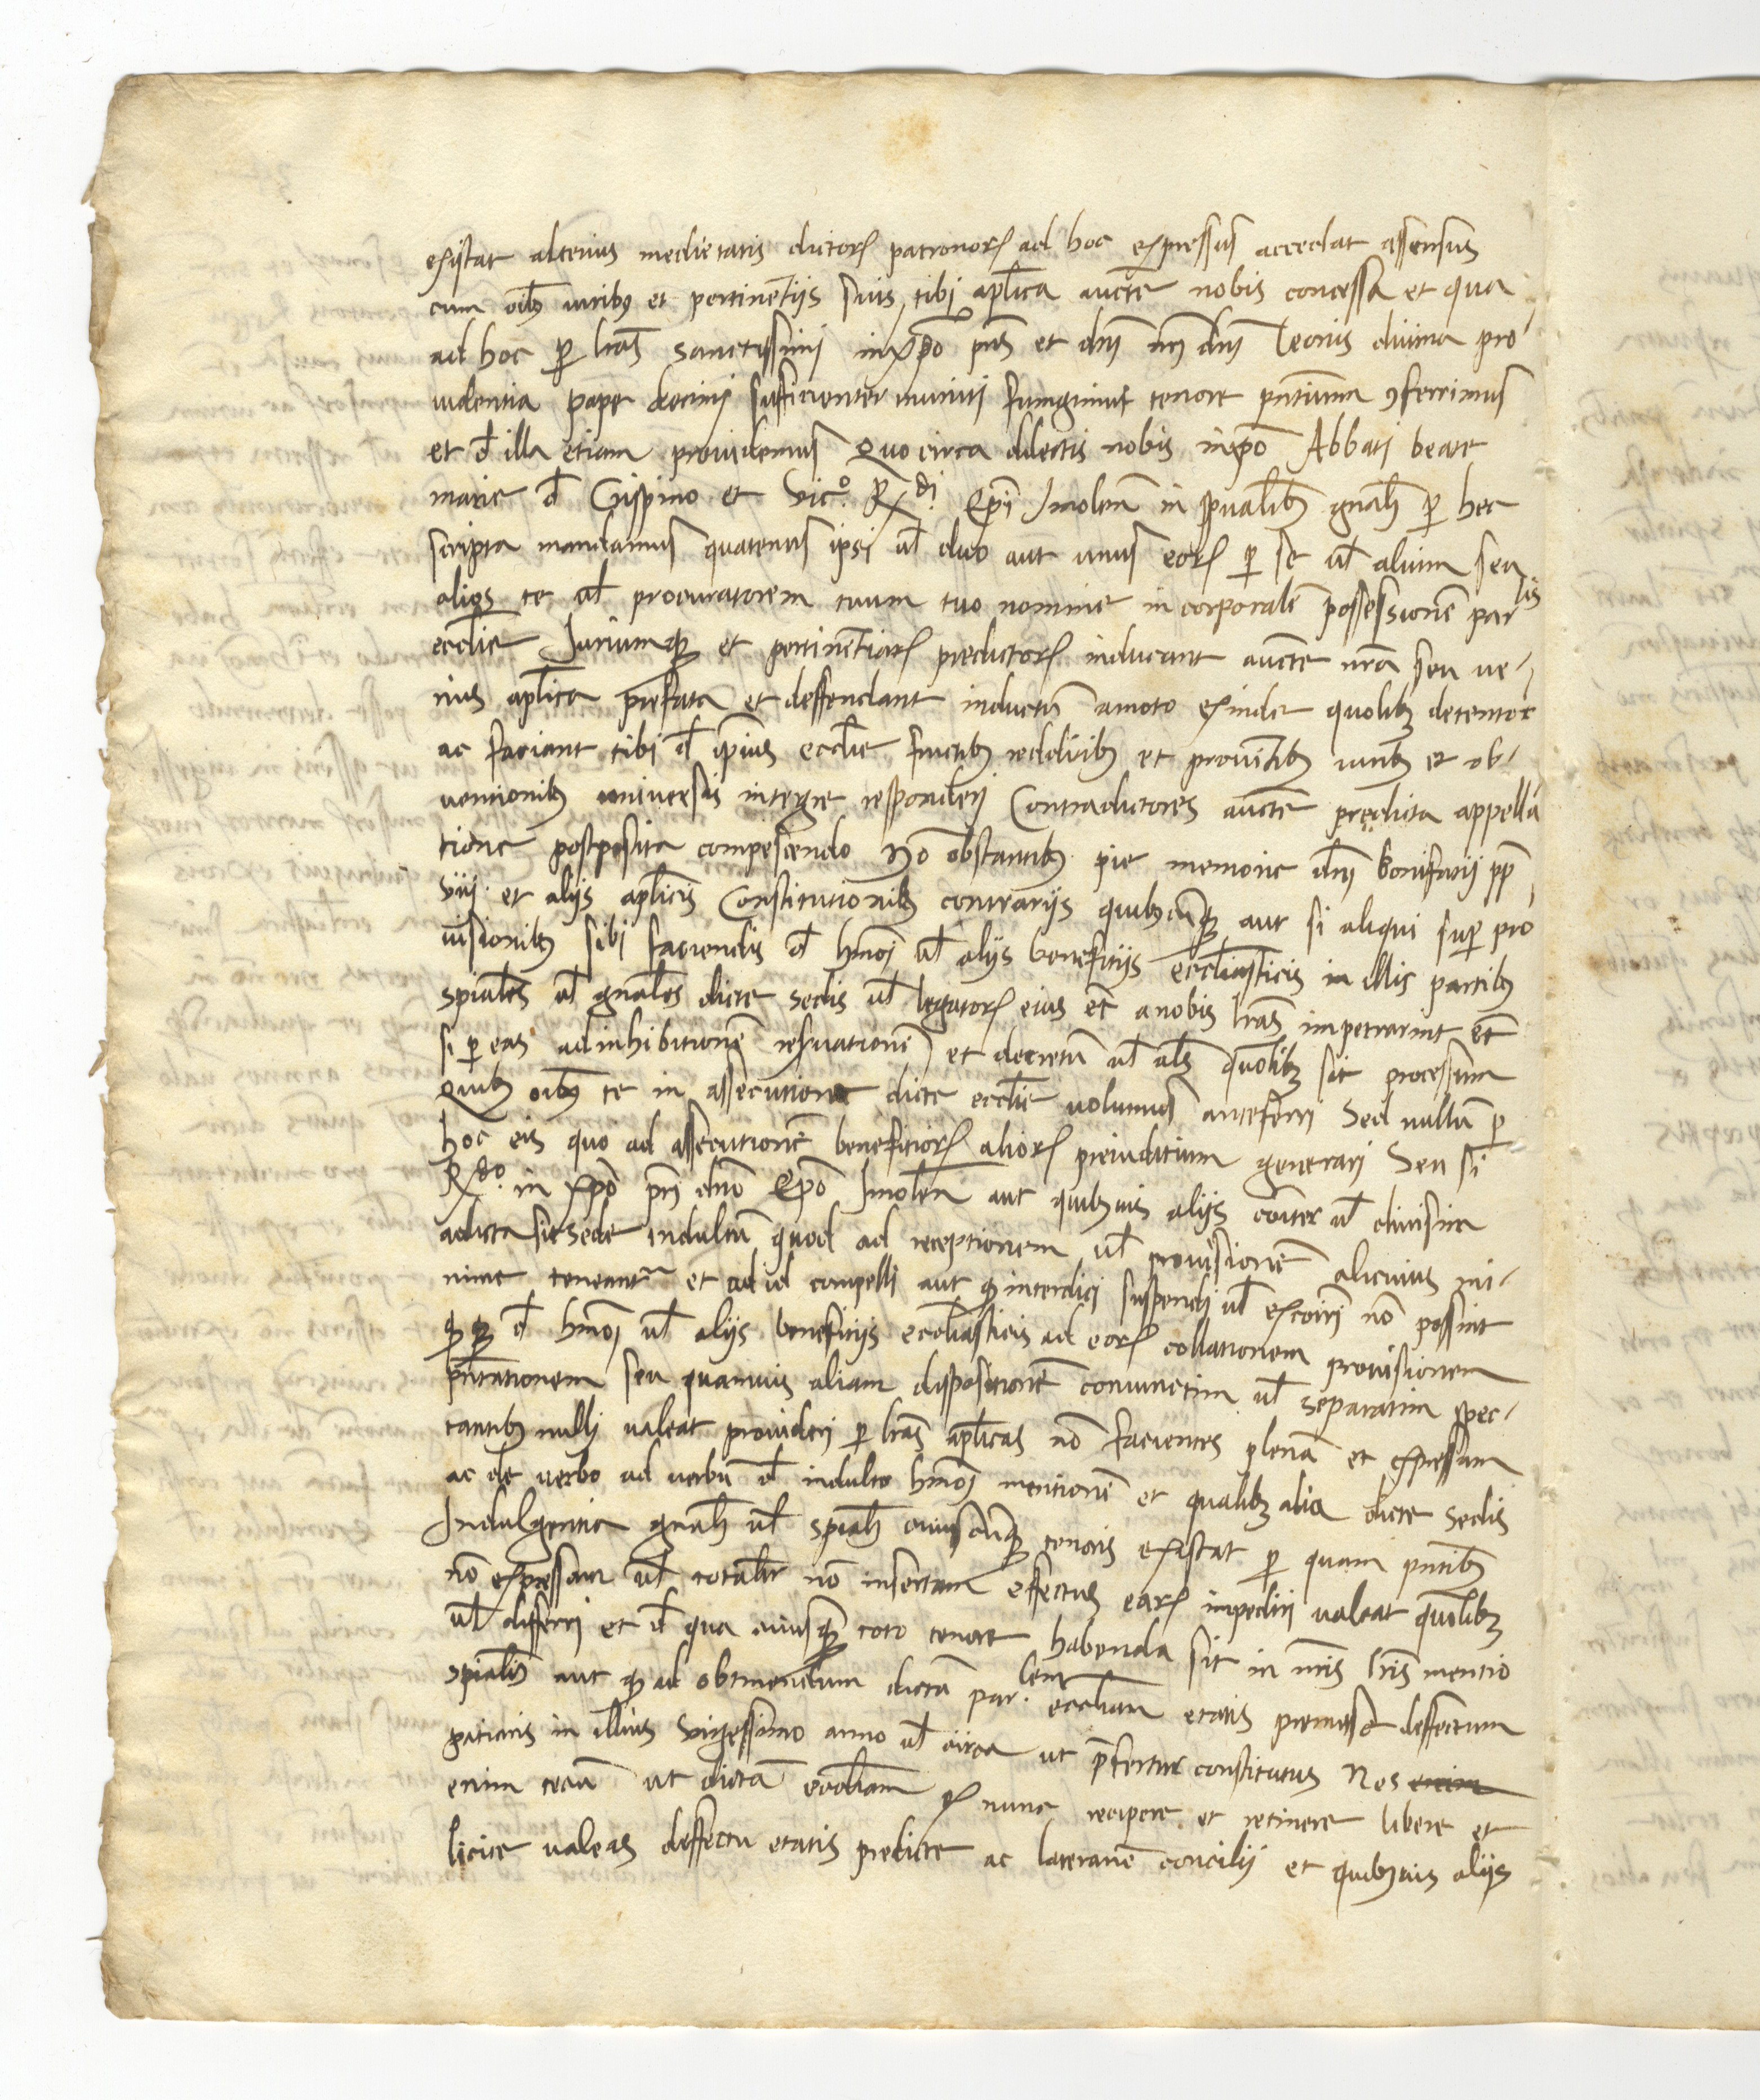 existat alterius medietatis dictoꝝ patronoꝝ ad hoc expressus accedat assensus
cum oībꝫ iuribꝫ et pertinētijs suis tibi aplīca aucte nobis concessa et qua
ad hoc ꝑ lrās sanctissimi in xp̄o pr̄is et dn̄i nr̄i dn̄i Leonis diuina pro-
uidentia pape decimi sufficienter muniti fungimur tenore pn̄tium ꝯferrimus
et đ illa etiam prouidemus Quo circa dilectis nobis in xpō Abbati beate
marie đ Crispino et Vic.º R.di Epī Imoleñ in spūalibꝫ gnāli ꝑ hec
scripta mandamus quatenus ipsi ul̄ duo aut unus eoꝝ ꝑ se ul̄ alium seu
alios te ul̄ procuratorem tuum tuo nomine in corporalē possessionē par.lis
ecclīe Juriumqꝫ et pertinētiaꝝ predictoꝝ inducant aucte nrā seu ue-
rius aplīca prefata et deffendant inductū amoto exinde quolibꝫ detentore
ac faciant tibi đ ipīus ecclīe fructibꝫ redditibꝫ et prouētibꝫ iuribꝫ et ob-
uentionibꝫ uniuersis integre responderi Contradictores aucte prędicta appella
tione postposita compescendo Nō obstantibꝫ pie memorie dn̄i bonifacij pp̄
viij et alijs aplīcis Constitutionibꝫ contrarijs quibꝫcūqꝫ aut si aliqui suꝑ pro
uisionibꝫ sibi faciendis đ hmōi ul̄ alijs benefitijs ecclīasticis in illis partibꝫ
spiāles ul̄ gnāles dicte sedis ul̄ legatoꝝ eius et̄ a nobis lrās impetrarint et̄
si ꝑ eas ad inhibitionē reseruationē et decretū ul̄ als quolibꝫ sit processum
Quibꝫ oībꝫ te in assecutione dicte ecclīe uolumus anteferri Sed nullū ꝑ
hoc eis quo ad assecutionē benefitioꝝ alioꝝ preiuditium generari Seu si
R.do in xpō pr̄i dnō Epō Imoleñ aut quibꝫuis alijs cōiter ul̄ diuisim
a dicta sit sede indultū quod ad receptionem ul̄ prouisionē alicuius mi-
nime teneantr et ad id compelli aut ꝙ interdici suspendi ul̄ excoīri nō possint
đ hmōi ul̄ alijs benefitijs ecclīasticis ad eoꝝ collationem prouisionem
pn̄tationem seu quamuis aliam dispositionē coniunctim ul̄ separatim spec-
tantibꝫ nulli ualeat prouideri ꝑ lrās aplīcas nō facientes plenā et expressam
ac de uerbo ad uerbū đ indulto hmōi mentionē et qualibꝫ alia dicte sedis
Indulgentia gnāli ul̄ spiāli cuiuscūqꝫ tenoris existat ꝑ quam pn̄tibꝫ
nō expressam ul̄ totalr nō insertam effectus eaꝝ impediri ualeat quolibꝫ
ul̄ differri et đ qua cuiusqꝫ toto tenore habenda sit in nr̄is lrīs mentio
spiālis aut ꝙ ad obtinendum dictā par.lem ecclīam etatis premisse deffectum
patiaris in illius vigessimo anno ul̄ circa ut p̄fertur constitutus Nos enim
enim tecū ut dictā ecclīam ex nunc recipere et retinere libere et
licite ualeas deffectu etatis predicte ac lateraneñ concilij et quibꝫuis alijs